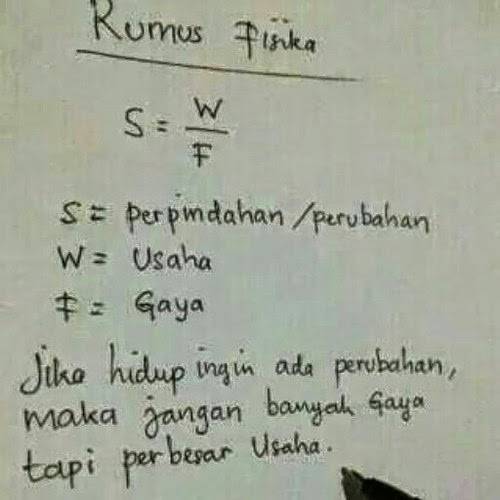 Rumus Fisika
S = W/F
S = perpindahan/perubahan
W = Usaha
F = Gaya
Jika hidup ingin ada perubahan,
maka jangan banyak Gaya
tapi perbesar Usaha.